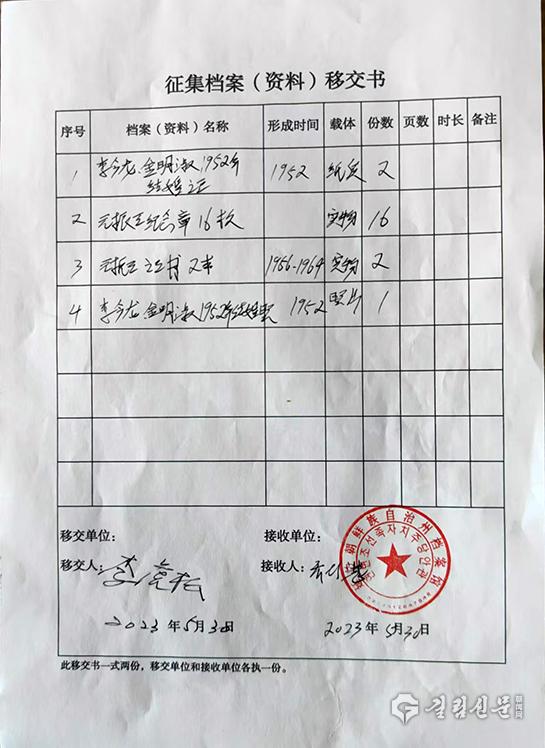 征集档案（资料）移交书
序号 档案（资料）名称 形成时间 载体 份数 页数 时长 备注
1 李今龙、金明淑1952年 1952 纸质 2
结婚证
2 元振五纪念章16枚 实物 16
3 元振五 2本 1956-1964 实物 2
4 李今龙、金明淑1952年结婚照 1952 照片 1
移交单位：
接收单位：
移交人：李
接收人：
延边朝鲜族自治州档案馆
연변조선족자치주당안관
2023年5月30日
2023年5月30日
此移交书一式两份，移交单位和接收单位各执一份。
길림신문
新闻网